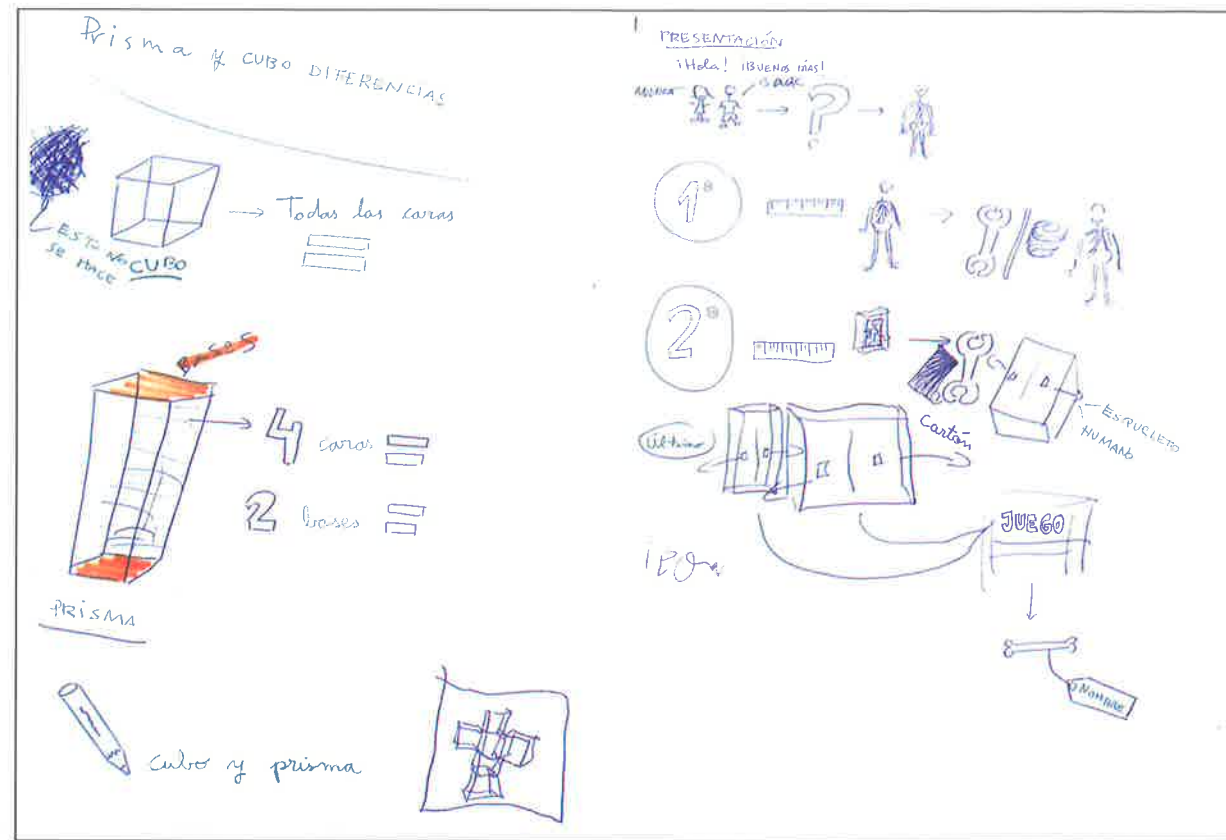 Prisma y CUBO DIFERENCIAS
Todas las caras
ESTO NO
SE HACE
CUBO
BASES
4 caras
2 bases
PRISMA
Cubo y prisma
1
PRESENTACIÓN
¡Hola! ¡BUENOS DÍAS!
1º
2º
Cartón
ESQUELETO
HUMANO
Último
JUEGO
NOMBRE